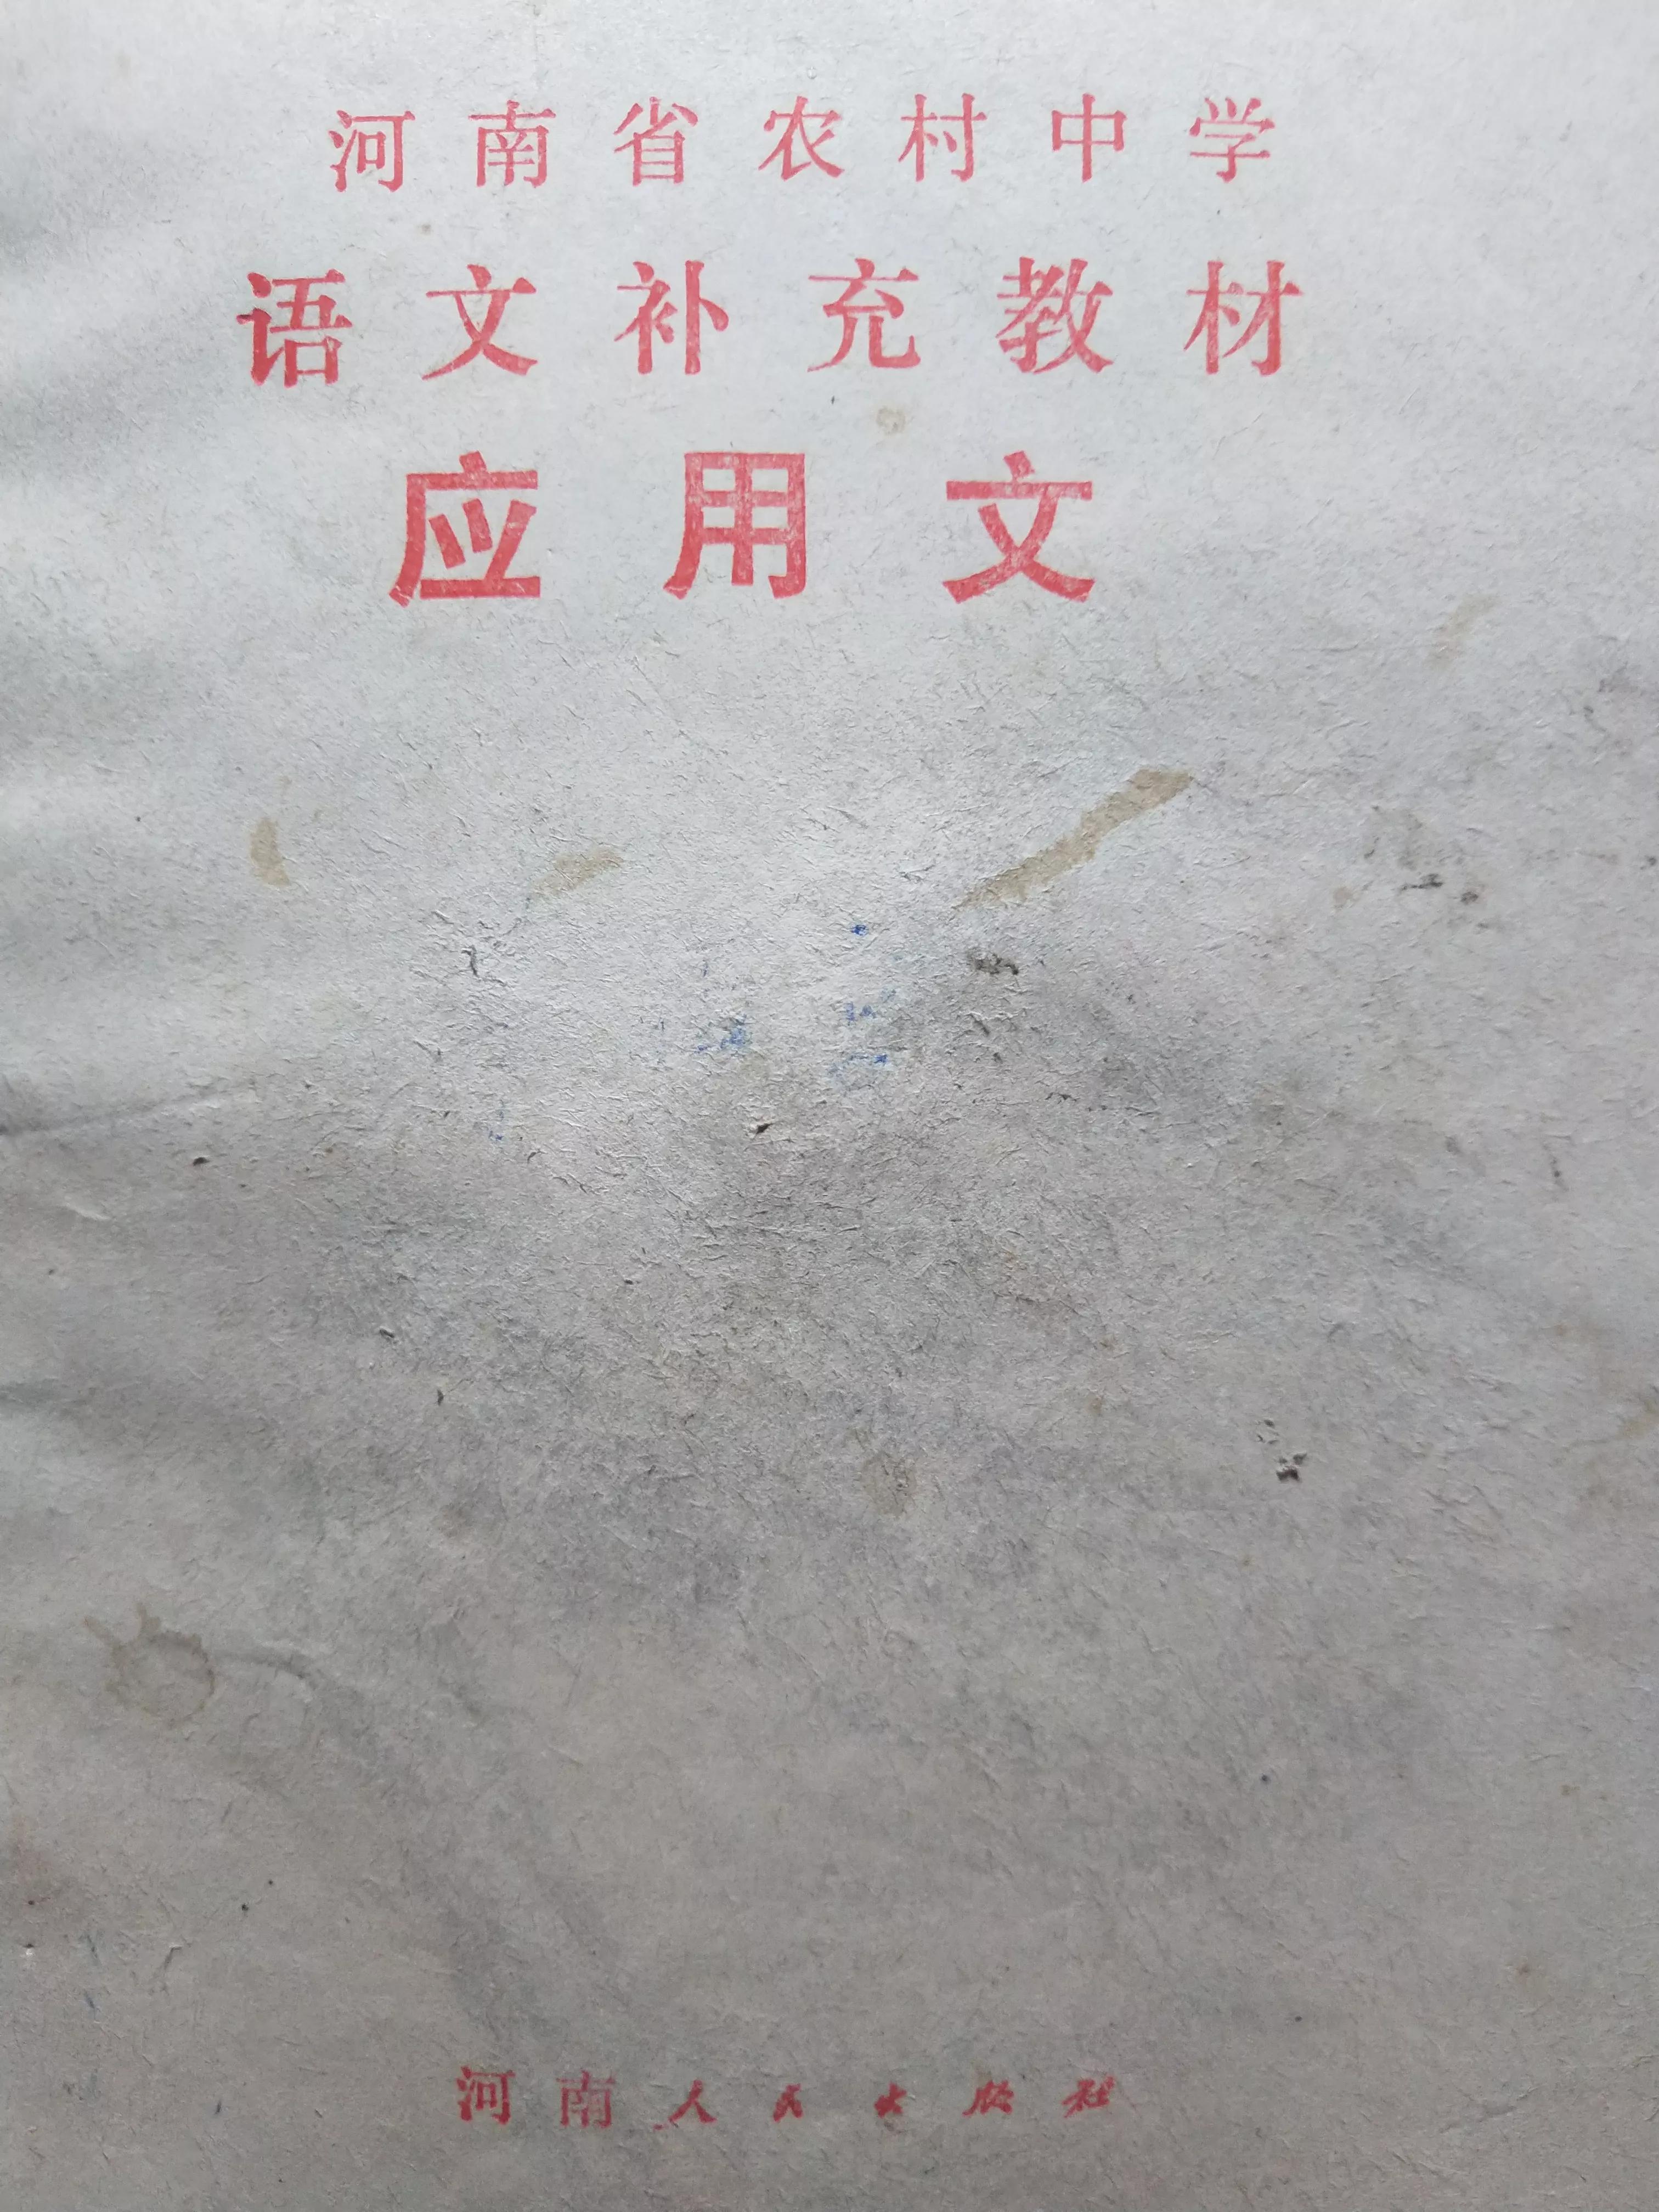 河南省农村中学
语文补充教材
应用文
河南人民出版社